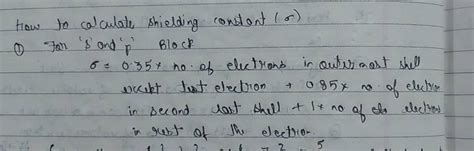 How to calculate shielding constant (σ)
① For 's' and 'p' Block
σ = 0.35 × no. of electrons in outermost shell
except last electron + 0.85 × no. of electron
in second last shell + 1 × no of electrons
in rest of the electron.